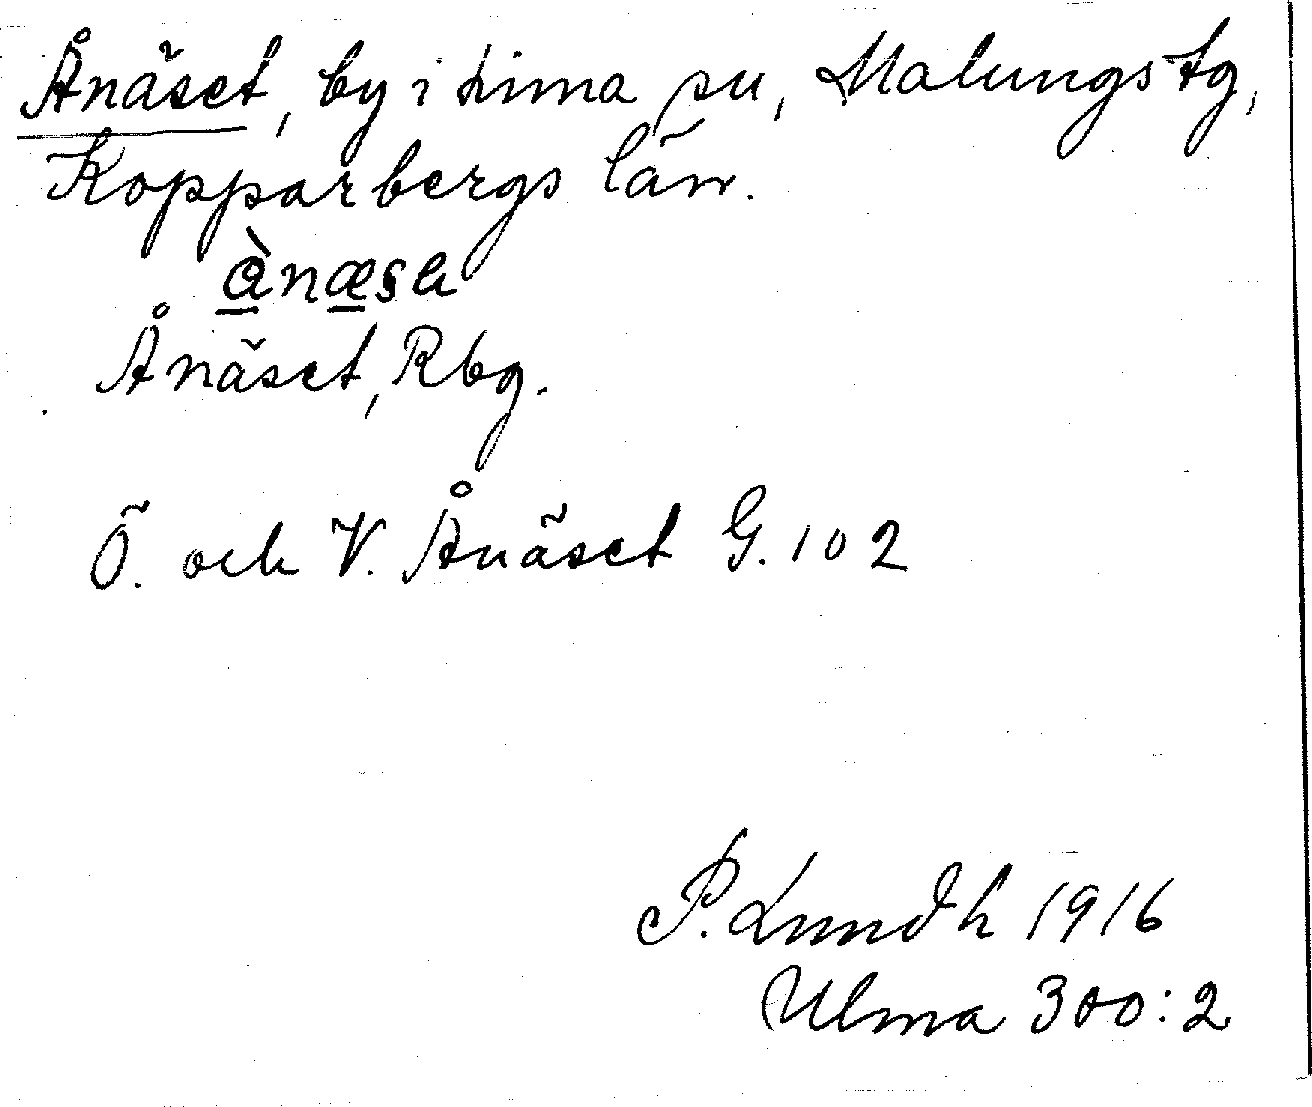 Ånäset, by i Lima sn, Malungs tg,
Kopparbergs län.
ànæsa
Ånäset, Rbg.
Ö. och V. Ånäset G. 102
P. Lundh 1916
Ulma 300:2